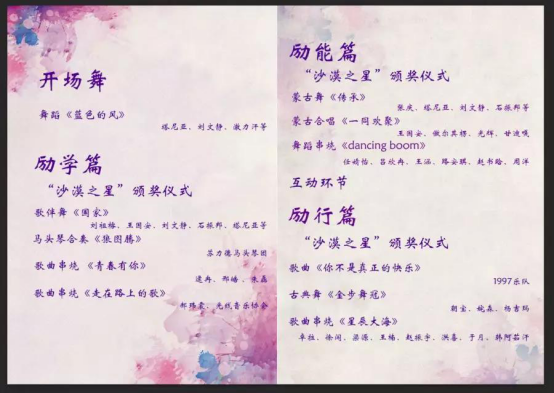 开场舞
舞蹈《蓝色的风》
塔尼亚、刘文静、激力汗等
励学篇
“沙漠之星”颁奖仪式
歌伴舞《国家》
刘祖楠、王国安、刘文静、石振邦、塔尼亚等
马头琴合奏《狼图腾》
苏力德马头琴团
歌曲串烧 《青春有你》
歌曲串烧《走在路上的歌》
励能篇
“沙漠之星”颁奖仪式
蒙古舞《传承》
张庆、塔尼亚、刘文静、石振邦等
蒙古合唱《一同欢聚》
王国安、傲尔其楞、光辉、
舞蹈串烧《dancing boom》
任婧怡、吕欣冉、王涵、路安琪、赵书晗、周洋
互动环节
励行篇
“沙漠之星”颁奖仪式
歌曲《你不是真正的快乐》
1997乐队
古典舞《金步舞冠》
朝宝、姚磊、杨吉玛
歌曲串烧《星辰大海》
梁源、王楠、赵振宇、洪喜、于月、韩阿茹汗